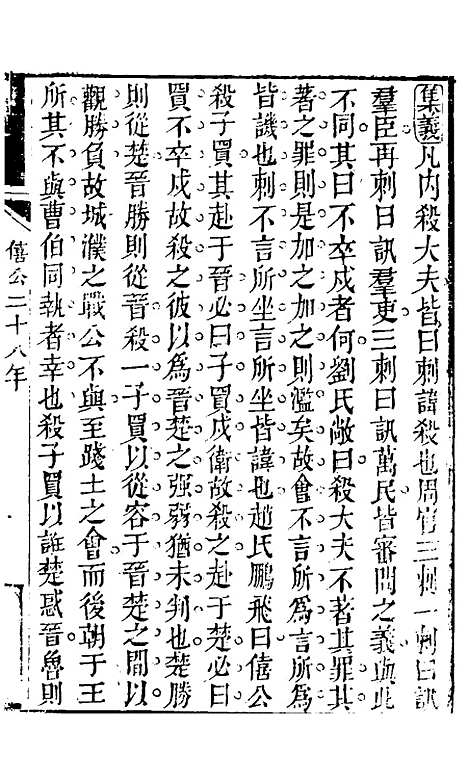 集義凡内殺大夫皆曰刺諱殺也周官三刺一刺曰訊
羣臣再刺曰訊羣吏三刺曰訊萬民皆審問之義與此
不同其曰不卒戍者何劉氏敞曰殺大夫不著其罪其
著之罪則是加之加之則濫矣故會不言所爲言所爲
皆譏也刺不言所坐言所坐皆諱也趙氏鵬飛曰僖公
殺子買其赴于晉必曰子買戍衛故殺之赴于楚必曰
買不卒戍故殺之彼以爲晉楚之强弱猶未判也楚勝
則從楚晉勝則從晉殺一子買以從容于晉楚之間以
觀勝負故城濮之戰公不與至踐土之會而後朝于王
所其不與曹伯同執者幸也殺子買以誑楚惑晉魯則
僖公二十八年